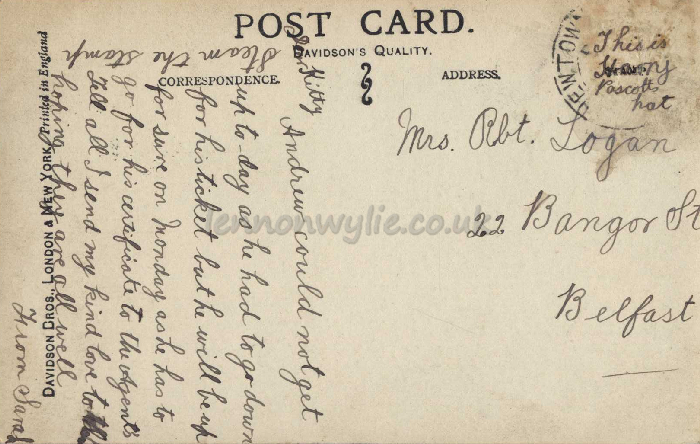 POST CARD.
DAVIDSON'S QUALITY.
CORRESPONDENCE.
ADDRESS.
DAVIDSON BROS., LONDON & NEW YORK. Printed in England
Steam the stamp
Kitty
Andrew could not get
up to-day as he had to go down
for his ticket but he will be up
for sure on Monday as he has to
go for his certificate to the Agents
Tell all I send my kind love to
hoping they are all well
From Sarah
This is
Pascotts
hat
Mrs. Rbt. Logan
22 Bangor St
Belfast
lennonwylie.co.uk